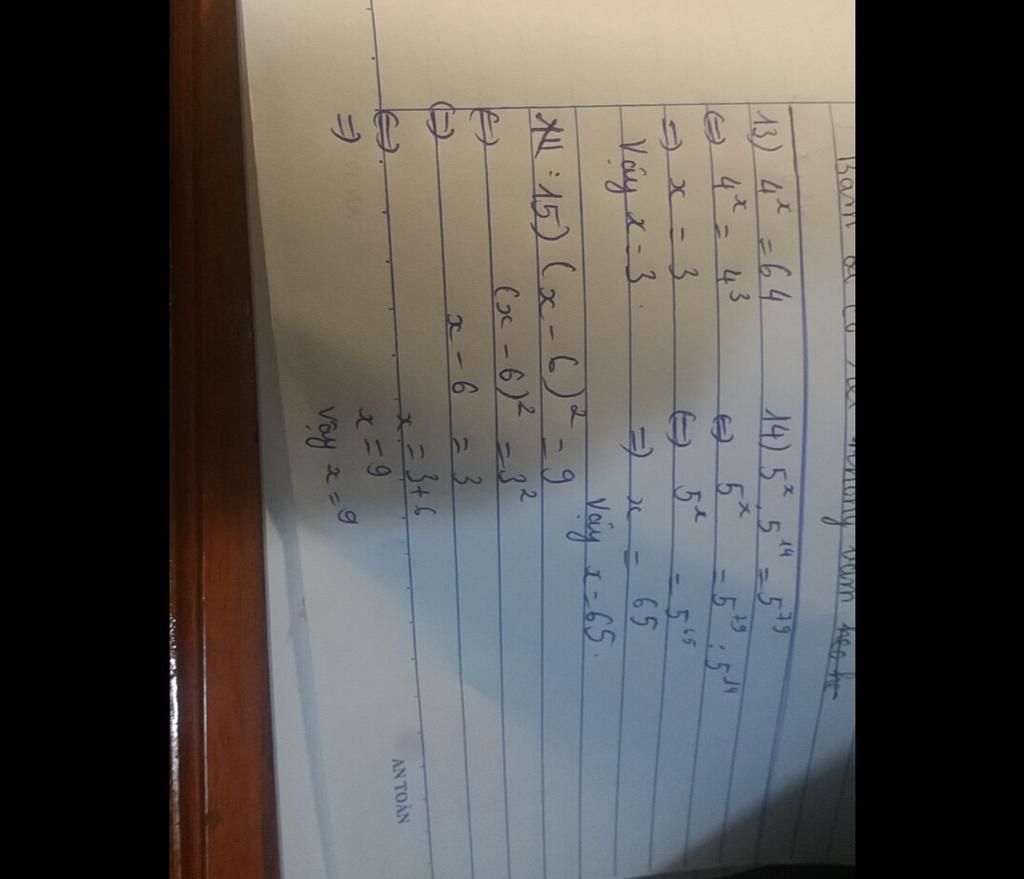 13) 4ˣ = 64
(=) 4ˣ = 4³
=) x = 3
Vậy x = 3.
14) 5ˣ . 5¹⁴ = 5⁷⁹
(=) 5ˣ = 5⁷⁹ : 5¹⁴
(=) 5ˣ = 5⁶⁵
=) x = 65
Vậy x = 65.
15) (x - 6)² = 9
(=) (x - 6)² = 3²
(=) x - 6 = 3
(=) x = 3 + 6
=) x = 9
Vậy x = 9
AN TOÀN